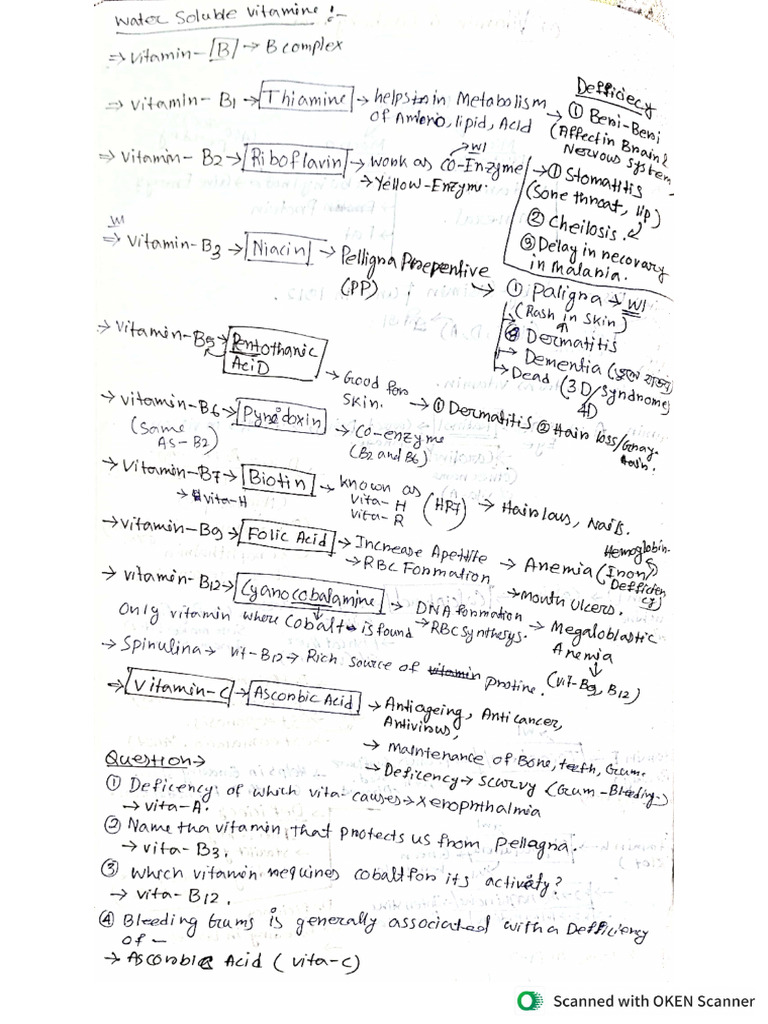 Water Soluble Vitamine :-
⇒ vitamin-[B] → B complex
Defficiecy
⇒ vitamin-B1 → Thiamine → helps in Metabolism of Amino, lipid, Acid → ① Beri-Beri
(Affect in Brain & Nervous System
⇒ vitamin-B2 → Riboflavin → work as Co-Enzyme
→ Yellow-Enzyme.
→ ① Stomatitis
(Sore throat, lip)
② Cheilosis.
③ Delay in recovary
in malaria.
⇒ Vitamin-B3 → Niacin → Pelligra Preventive
(PP)
① Paligra →
(Rash in Skin)
② Dermatitis
→ Dementia
→ Dead (3D/Syndrome)
4D
→ vitamin-B5 → Pentothanic
Acid
→ Good for
Skin. → ① Dermatitis ② Hair loss/Gray
hair.
→ vitamin-B6 → Pyridoxin
(Same
AS-B2)
→ Co-enzyme
(B2 and B6)
→ Vitamin-B7 → Biotin → known as
vita-H
vita-R
(HR7) → Hair lous, Nails.
→ vita-H
→ vitamin-B9 → Folic Acid → Increase Apetite
→ RBC Formation
→ Anemia (Iron
Defficiency)
Hemoglobin
→ mouth Ulcers.
→ vitamin-B12 → Cyanocobalamine → DNA formation
→ RBC Synthesys. → Megaloblastic
Anemia
(vit-B9, B12)
Only vitamin where Cobalt is found
→ Spirulina → vit-B12 → Rich source of vitamin protine.
→ Vitamin-C → Ascorbic Acid → Antiageing, Anticancer,
Antivirous,
→ Maintenance of Bone, teeth, Gum.
→ Deficency → Scurvy (Gum-Bleeding)
Question →
① Deficency of which vita-causes → Xerophthalmia
→ vita-A.
② Name tha vitamin, that protects us from Pellagra.
→ vita-B3.
③ Which vitamin requires cobalt for its activaty?
→ vita-B12.
④ Bleeding Gums is generally associated with a Defficiency
of —
→ Ascorbic Acid (vita-C)
Scanned with OKEN Scanner